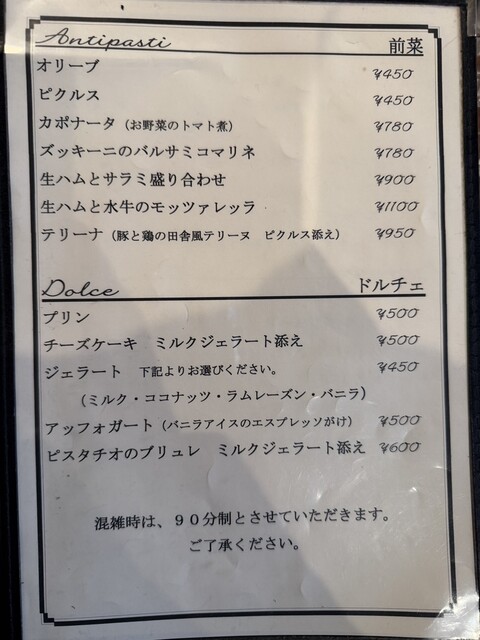 Antipasti 前菜
オリーブ ¥450
ピクルス ¥450
カポナータ（お野菜のトマト煮） ¥780
ズッキーニのバルサミコマリネ ¥780
生ハムとサラミ盛り合わせ ¥900
生ハムと水牛のモッツァレッラ ¥1100
テリーナ（豚と鶏の田舎風テリーヌ　ピクルス添え） ¥950
Dolce ドルチェ
プリン ¥500
チーズケーキ　ミルクジェラート添え ¥500
ジェラート　下記よりお選びください。 ¥450
（ミルク・ココナッツ・ラムレーズン・バニラ）
アッフォガート（バニラアイスのエスプレッソがけ） ¥500
ピスタチオのブリュレ　ミルクジェラート添え ¥600
混雑時は、９０分制とさせていただきます。
ご了承ください。